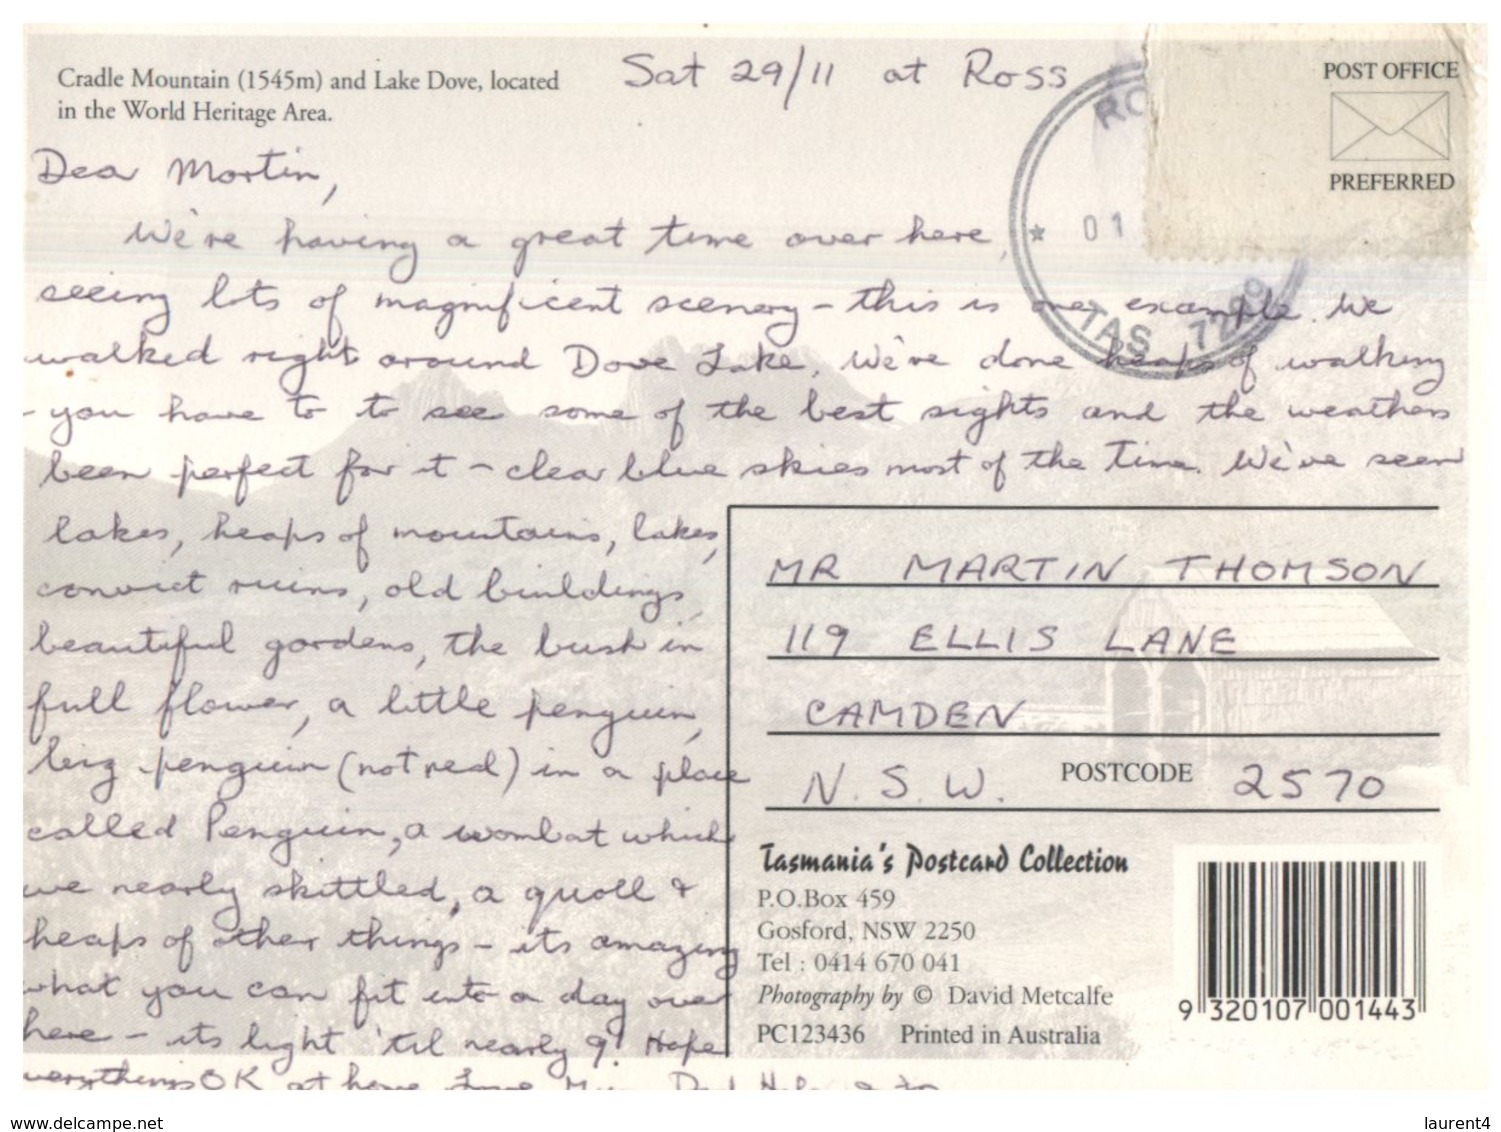 Cradle Mountain (1545m) and Lake Dove, located
in the World Heritage Area.
Sat 29/11 at Ross
POST OFFICE
PREFERRED
RO
01
TAS 7209
Dear Martin,
We're having a great time over here,
seeing lots of magnificent scenery - this is one example. We
walked right around Dove Lake. We've done heaps of walking
- you have to to see some of the best sights and the weathers
been perfect for it - clear blue skies most of the time. We've seen
lakes, heaps of mountains, lakes,
convict ruins, old buildings,
beautiful gardens, the bush in
full flower, a little penguin,
big penguin (not real) in a place
called Penguin, a wombat which
we nearly skittled, a quoll &
heaps of other things - its amazing
what you can fit into a day over
here - its light 'til nearly 9! Hope
everythings OK at home Love Mum Dad
MR MARTIN THOMSON
119 ELLIS LANE
CAMDEN
N.S.W. POSTCODE 2570
Tasmania's Postcard Collection
P.O.Box 459
Gosford, NSW 2250
Tel : 0414 670 041
Photography by © David Metcalfe
PC123436 Printed in Australia
9 320107 001443
www.delcampe.net
laurent4